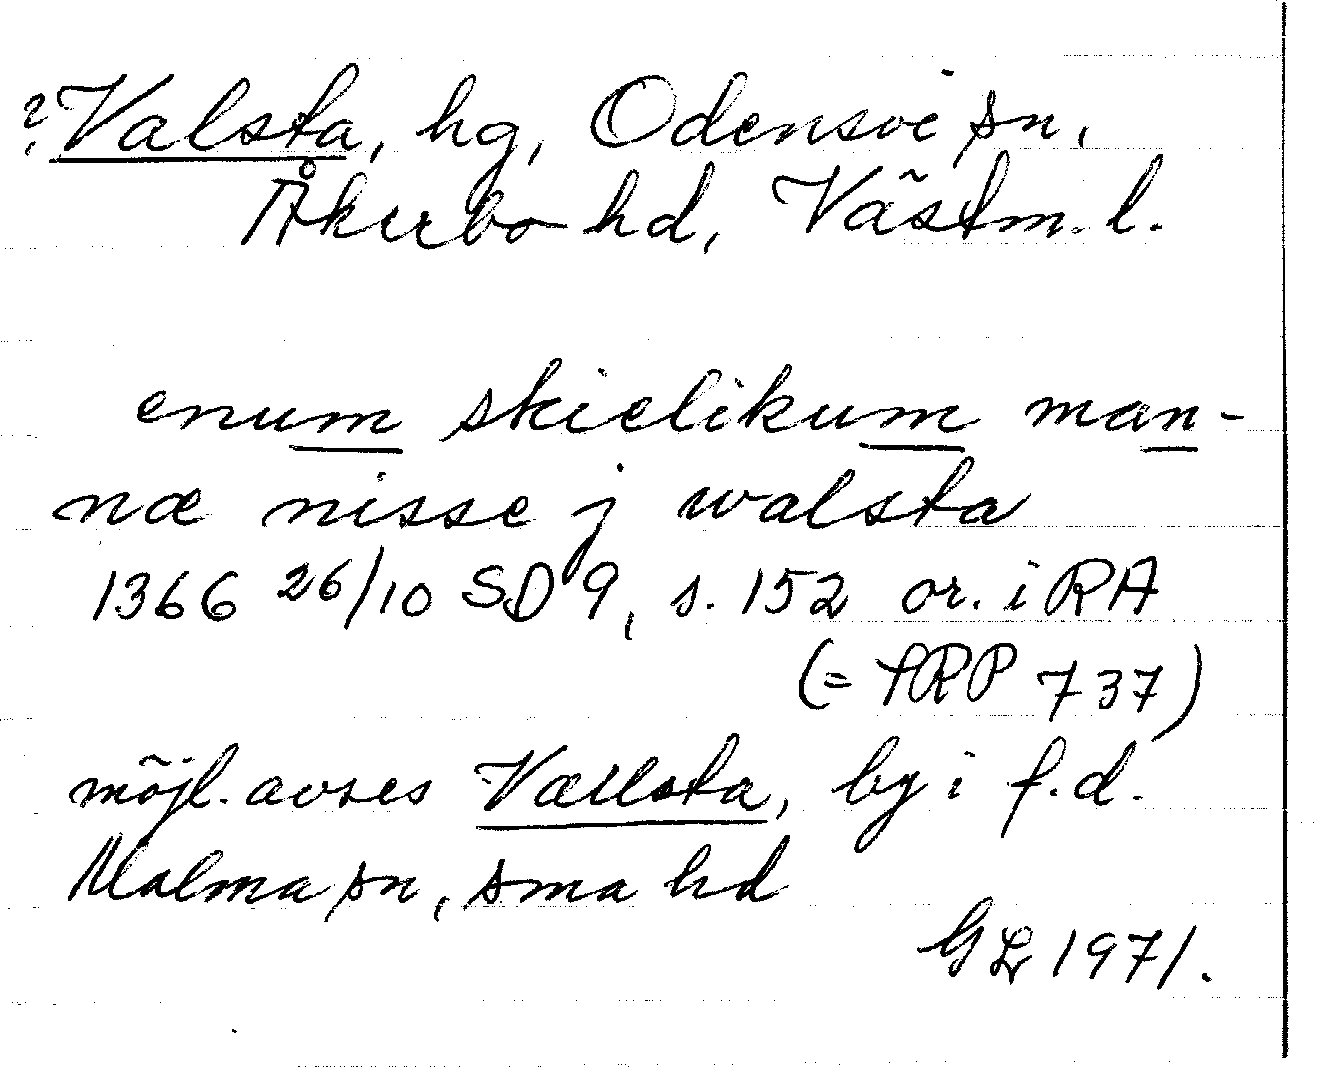 ? Valsta, hg, Odensvi sn,
Åkerbo hd, Västm. l.
enum skielikum man-
næ nisse j walsta
1366 26/10 SD 9, s. 152 or. i RA
(= fRPP 737)
möjl. avses Vallsta, by i f.d.
Malma sn, sma hd
GL 1971.